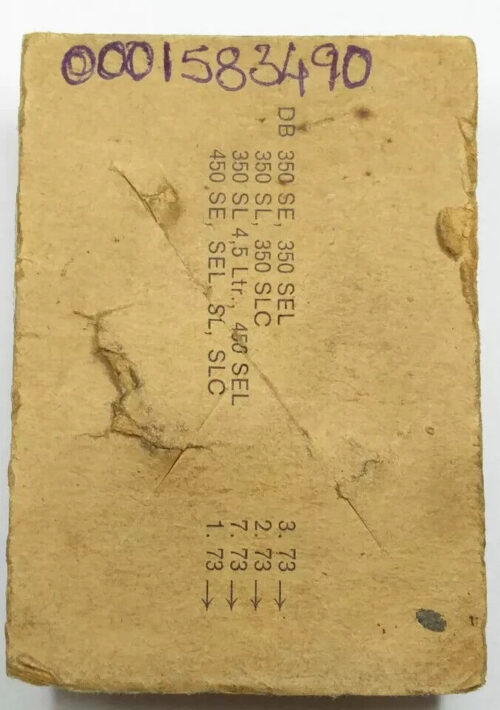 0001583490
DB 350 SE, 350 SEL 3. 73 →
350 SL, 350 SLC 2. 73 →
350 SL 4,5 Ltr., 450 SEL 7. 73 →
450 SE, SEL, SL, SLC 1. 73 →